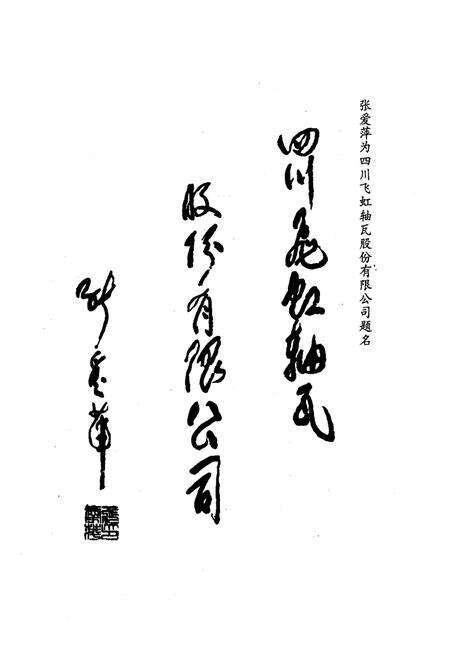 张爱萍为四川飞虹轴瓦股份有限公司题名
四川飞虹轴瓦
股份有限公司
张爱萍